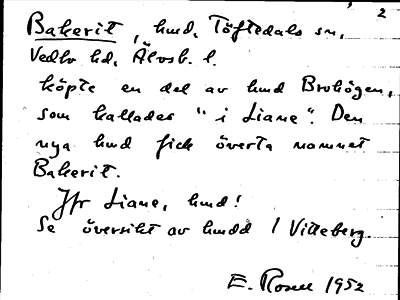 2
Bakerit, hmd, Töftedals sn,
Vedbo hd, Älvsb. l.
köpte en del av hmd Brohögen,
som kallades "i Liane". Den
nya hmd fick överta namnet
Bakerit.
Jfr Liane, hmd!
Se översikt av hmdd / Vitteberg.
E. Rosell 1952